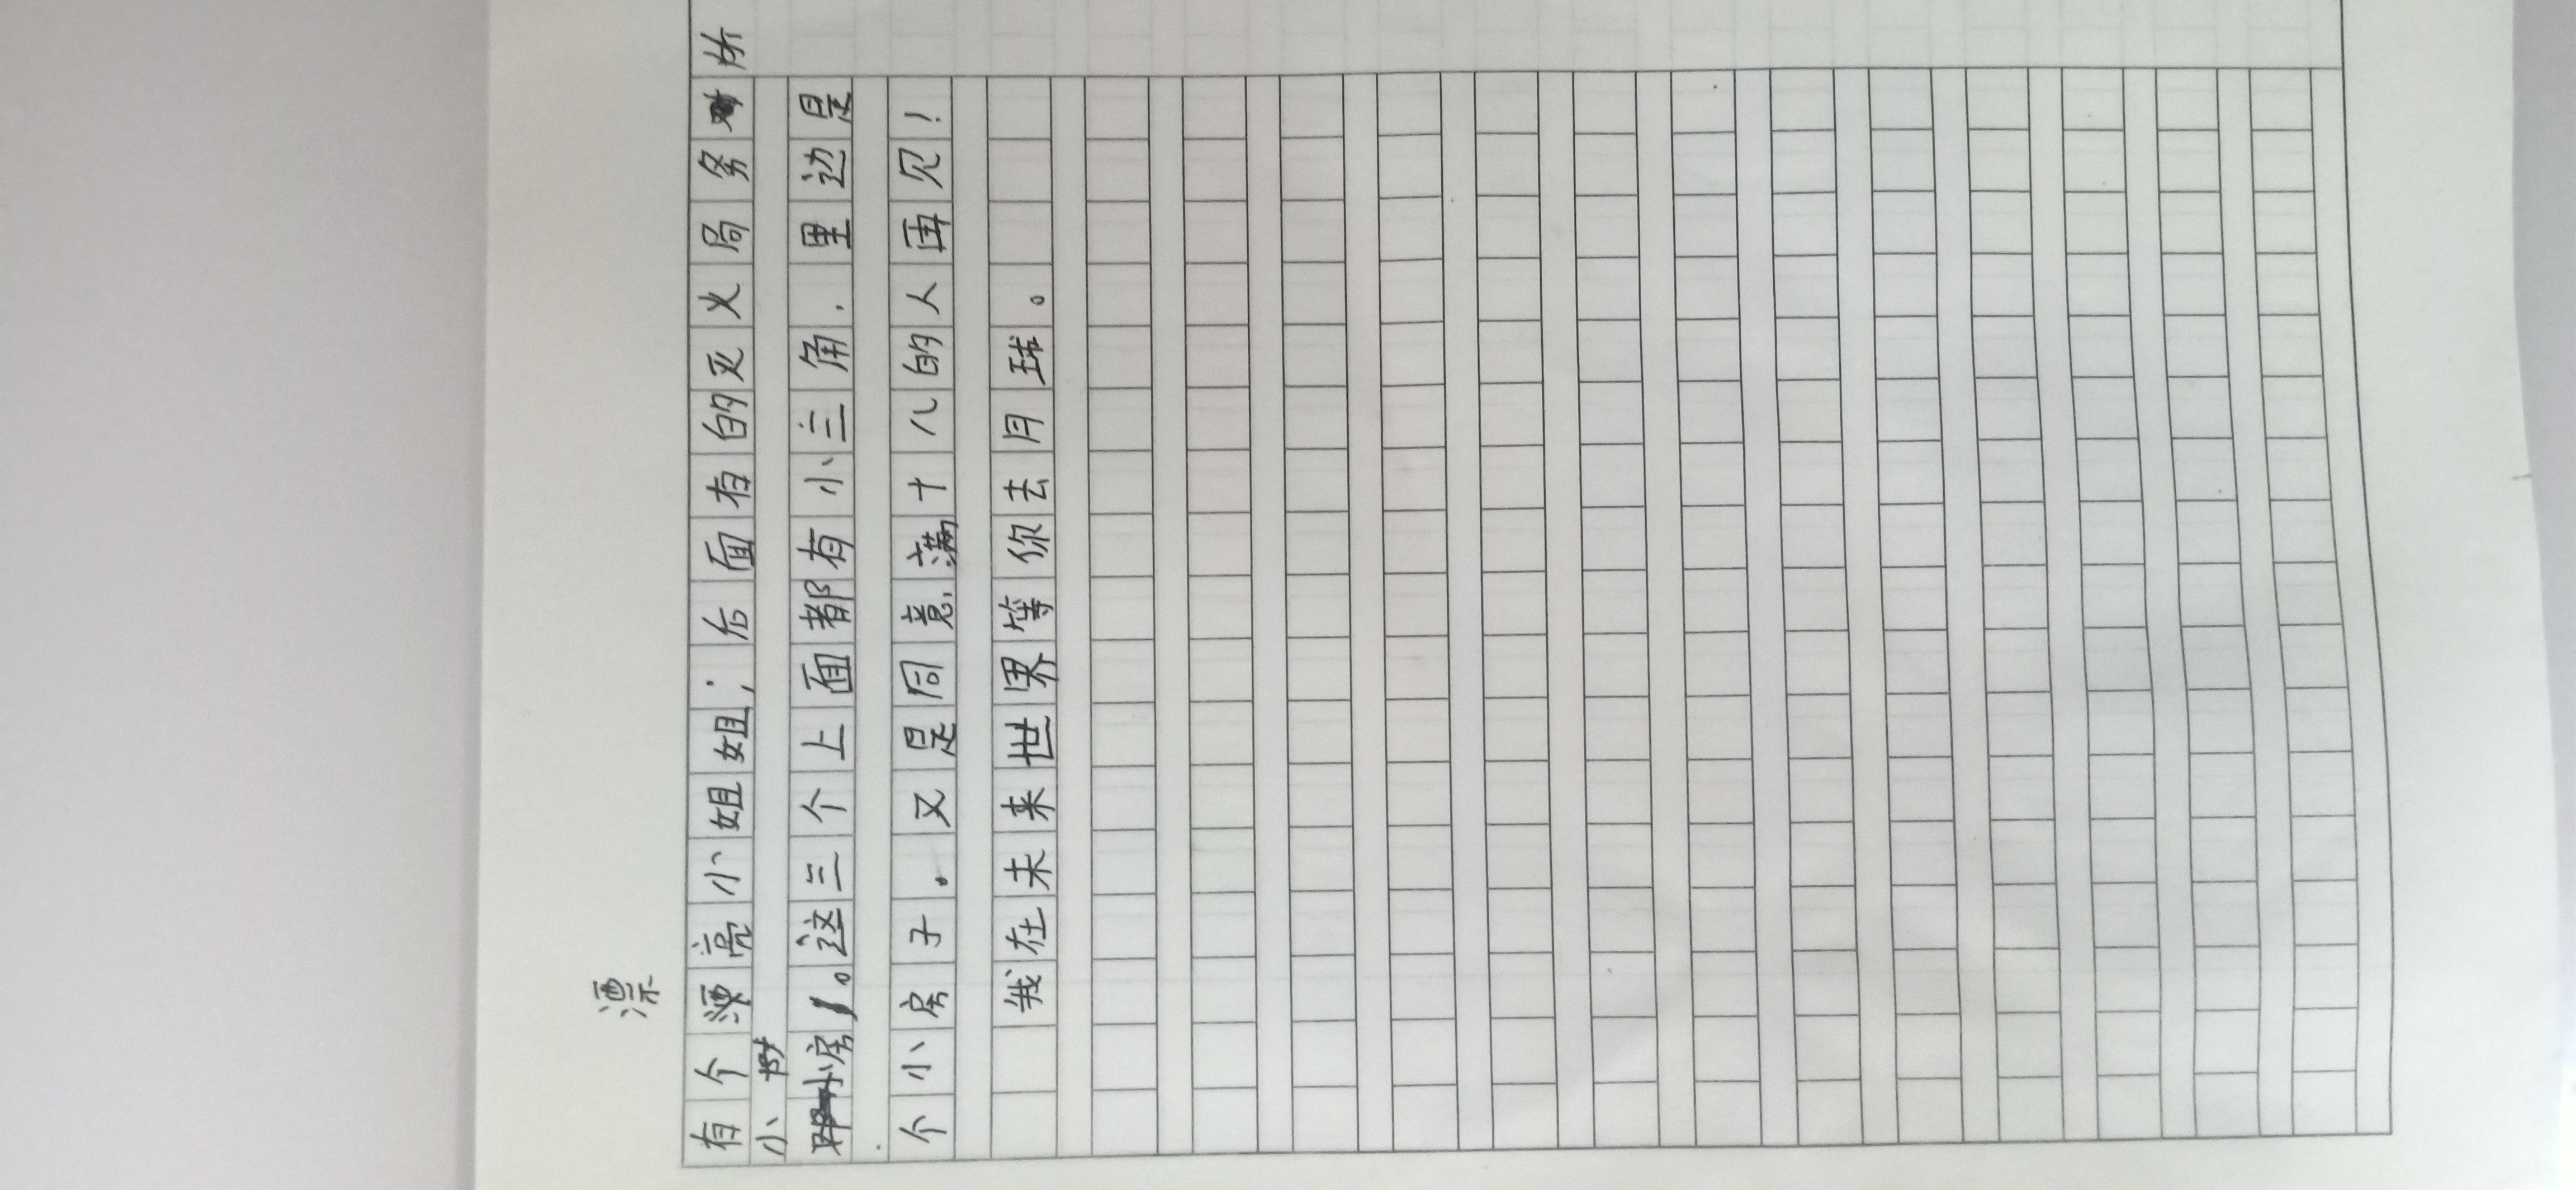 漂
有个漂亮小姐姐；后面有的灭火局务
小
小房。这三个上面都有小三角．里边是
个小房子．又是同意满十八的人再见！
我在未来世界等你去月球。